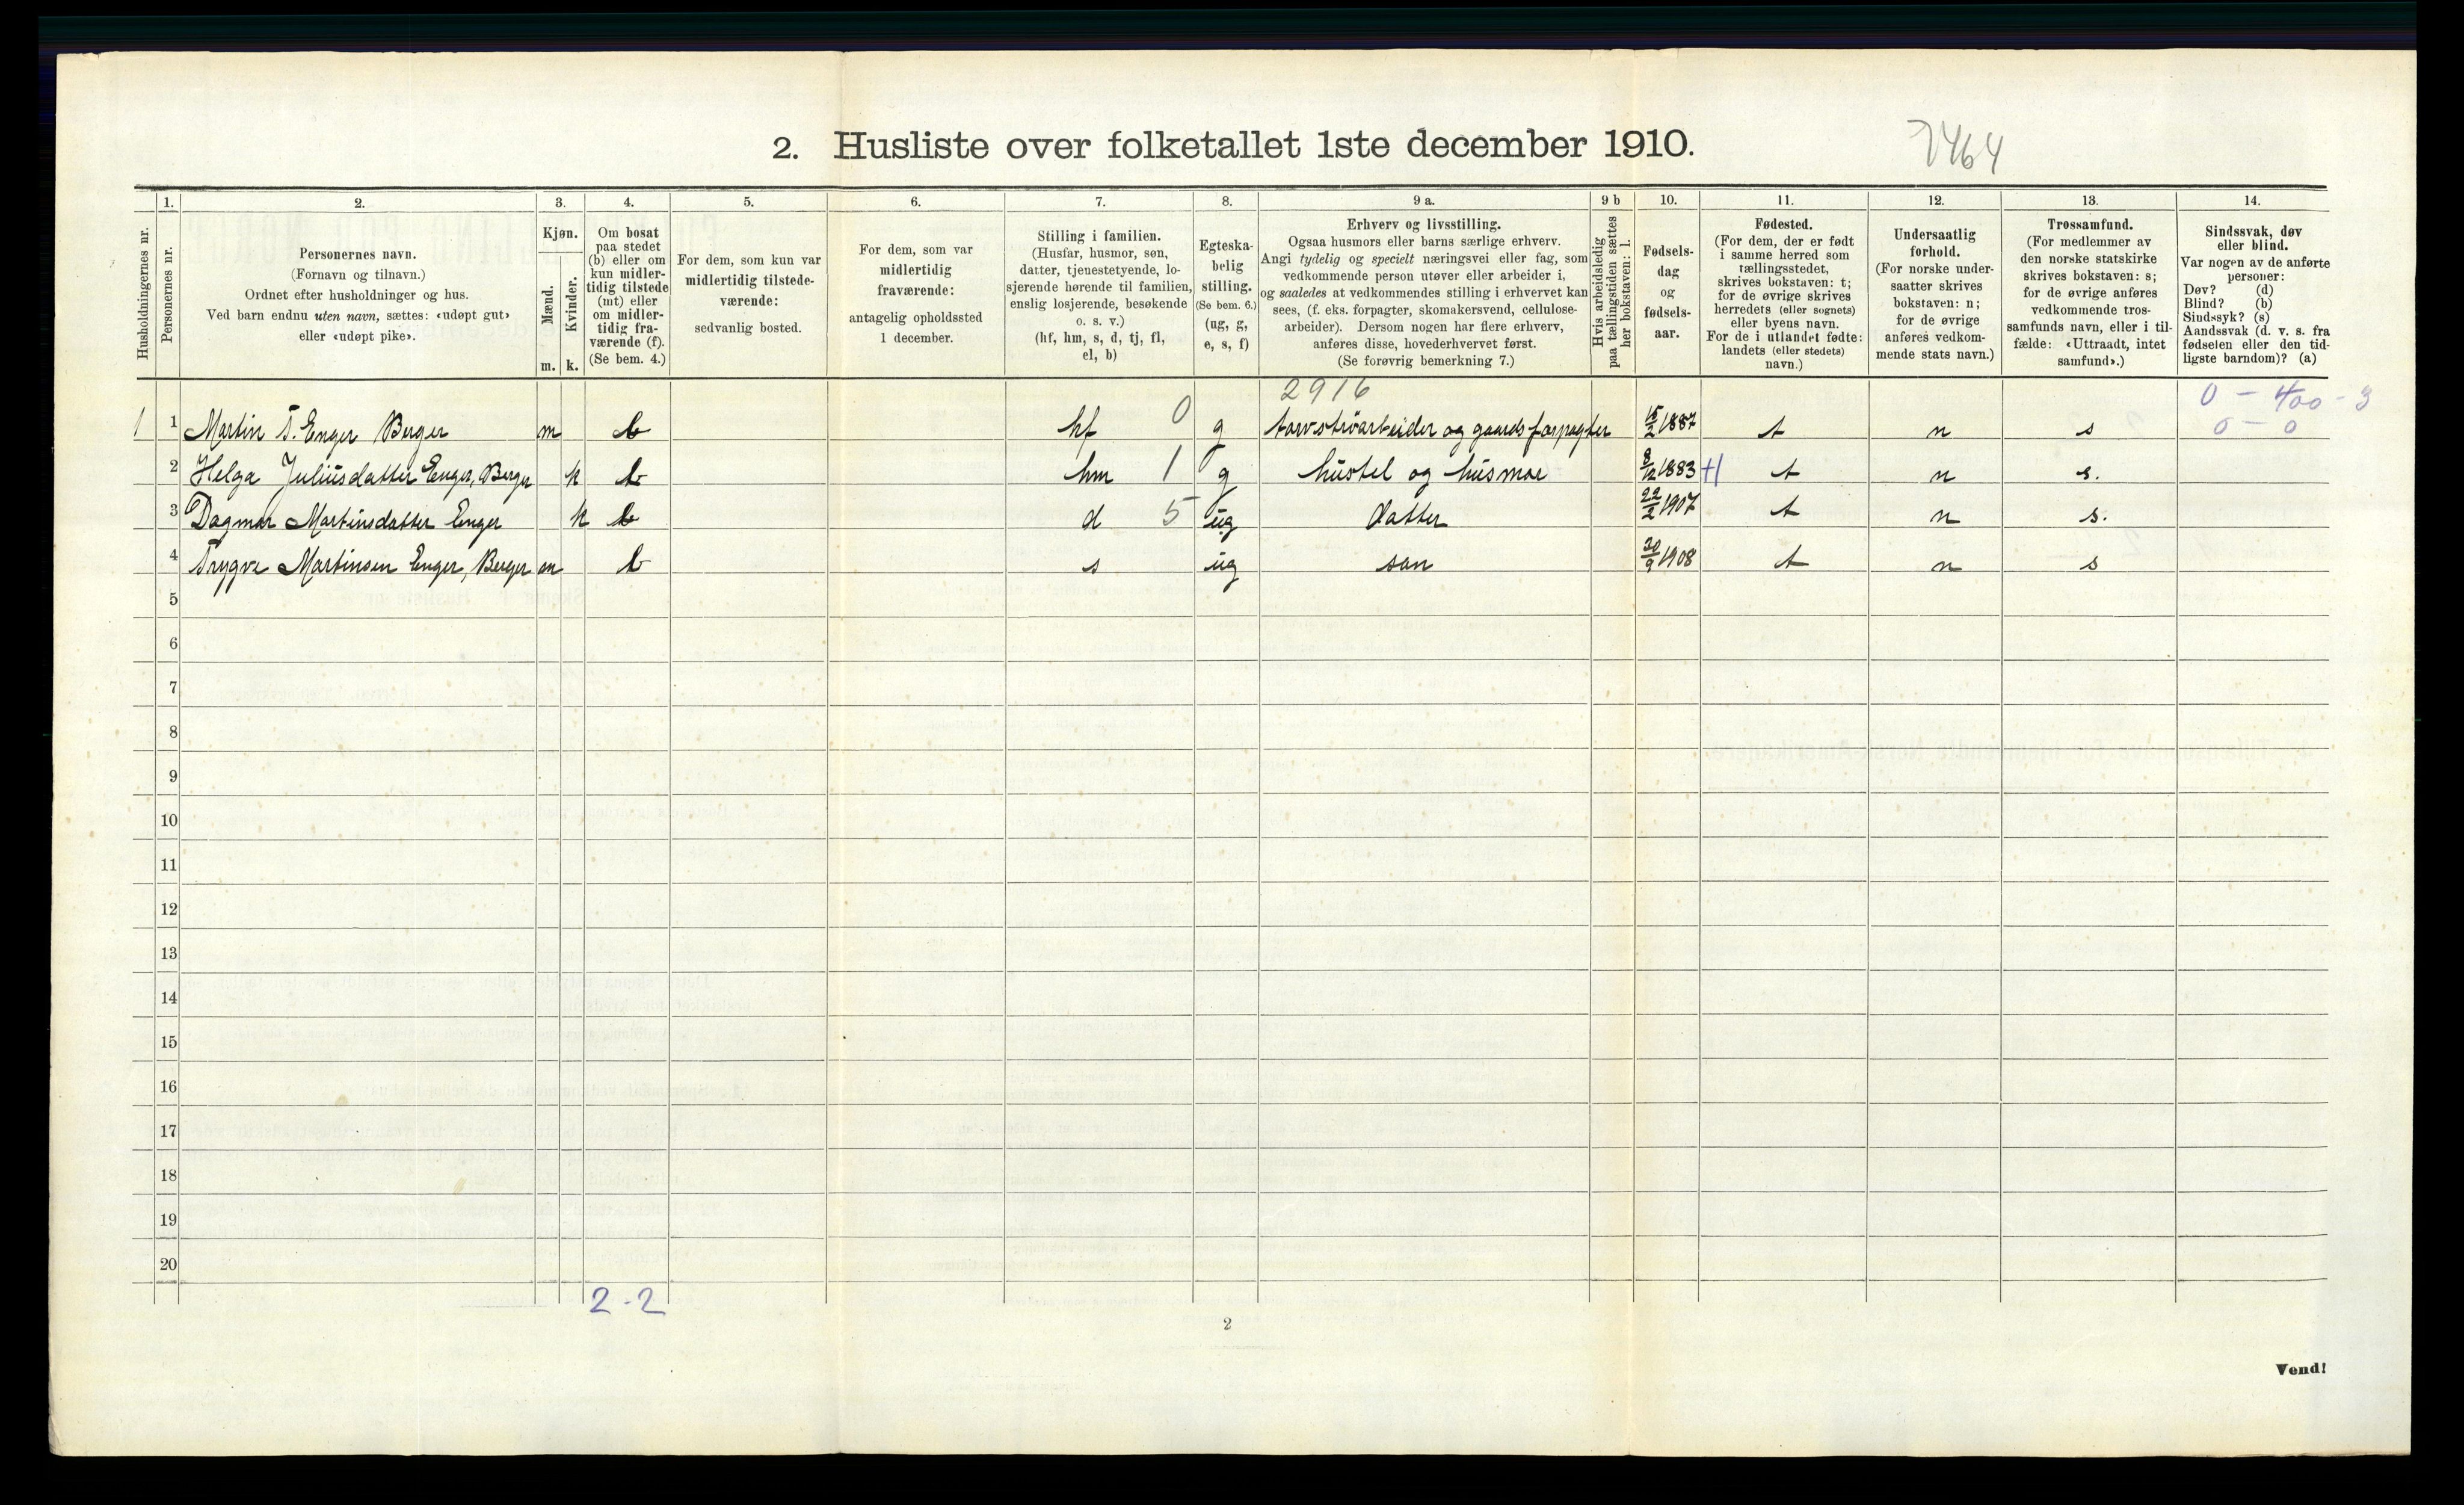 2. Husliste over folketallet 1ste december 1910.
7464
Husholdningernes nr.
1.
Personernes nr.
2.
Personernes navn.
(Fornavn og tilnavn.)
Ordnet efter husholdninger og hus.
Ved barn endnu uten navn, sættes: «udøpt gut»
eller «udøpt pike».
3.
Kjøn.
Mænd.
Kvinder.
m. k.
4.
Om bosat
paa stedet
(b) eller om
kun midler-
tidig tilstede
(mt) eller
om midler-
tidig fra-
værende (f).
(Se bem. 4.)
5.
For dem, som kun var
midlertidig tilstede-
værende:
sedvanlig bosted.
6.
For dem, som var
midlertidig
fraværende:
antagelig opholdssted
1 december.
7.
Stilling i familien.
(Husfar, husmor, søn,
datter, tjenestetyende, lo-
sjerende hørende til familien,
enslig losjerende, besøkende
o. s. v.)
(hf, hm, s, d, tj, fl,
el, b)
8.
Egteska-
belig
stilling.
(Se bem. 6.)
(ug, g,
e, s, f)
9 a.
Erhverv og livsstilling.
Ogsaa husmors eller barns særlige erhverv.
Angi tydelig og specielt næringsvei eller fag, som
vedkommende person utøver eller arbeider i,
og saaledes at vedkommendes stilling i erhvervet kan
sees, (f. eks. forpagter, skomakersvend, cellulose-
arbeider). Dersom nogen har flere erhverv,
anføres disse, hovederhvervet først.
(Se forøvrig bemerkning 7.)
9 b
Hvis arbeidsledig
paa tællingstiden sættes
her bokstaven: l.
10.
Fødsels-
dag
og
fødsels-
aar.
11.
Fødested.
(For dem, der er født
i samme herred som
tællingsstedet,
skrives bokstaven: t;
for de øvrige skrives
herredets (eller sognets)
eller byens navn.
For de i utlandet fødte:
landets (eller stedets)
navn.)
12.
Undersaatlig
forhold.
(For norske under-
saatter skrives
bokstaven: n;
for de øvrige
anføres vedkom-
mende stats navn.)
13.
Trossamfund.
(For medlemmer av
den norske statskirke
skrives bokstaven: s;
for de øvrige anføres
vedkommende tros-
samfunds navn, eller i til-
fælde: «Uttraadt, intet
samfund».)
14.
Sindssvak, døv
eller blind.
Var nogen av de anførte
personer:
Døv? (d)
Blind? (b)
Sindssyk? (s)
Aandssvak (d. v. s. fra
fødselen eller den tid-
ligste barndom)? (a)
2916
0 - 400 - 3
1 1 Martin T. Enger Berger m b hf 0 g torvströarbeider og gaardsforpagter 15/2 1887 t n s 0 - 0
2 Helga Juliusdatter Enger, Berger k b hm 1 g hustel og husmor 8/12 1883 H t n s.
3 Dagmar Martinsdatter Enger k b d 5 ug datter 22/2 1907 t n s.
4 Trygve Martinsen Enger, Berger m b s ug søn 30/9 1908 t n s
5
6
7
8
9
10
11
12
13
14
15
16
17
18
19
20
2 - 2
2
Vend!